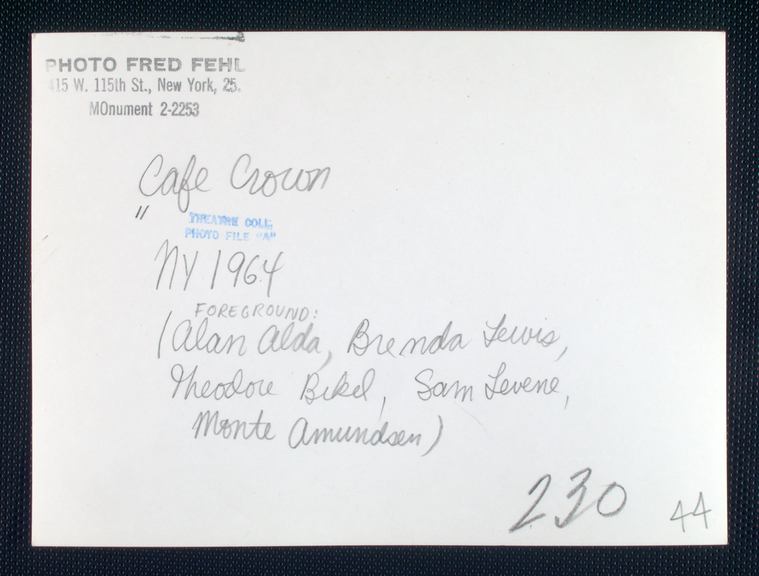 PHOTO FRED FEHL
415 W. 115th St., New York, 25.
MOnument 2-2253
Cafe Crown
"
THEATRE COLL.
PHOTO FILE "A"
NY 1964
FOREGROUND:
(Alan Alda, Brenda Lewis,
Theodore Bikel, Sam Levene,
Monte Amundsen)
230
44